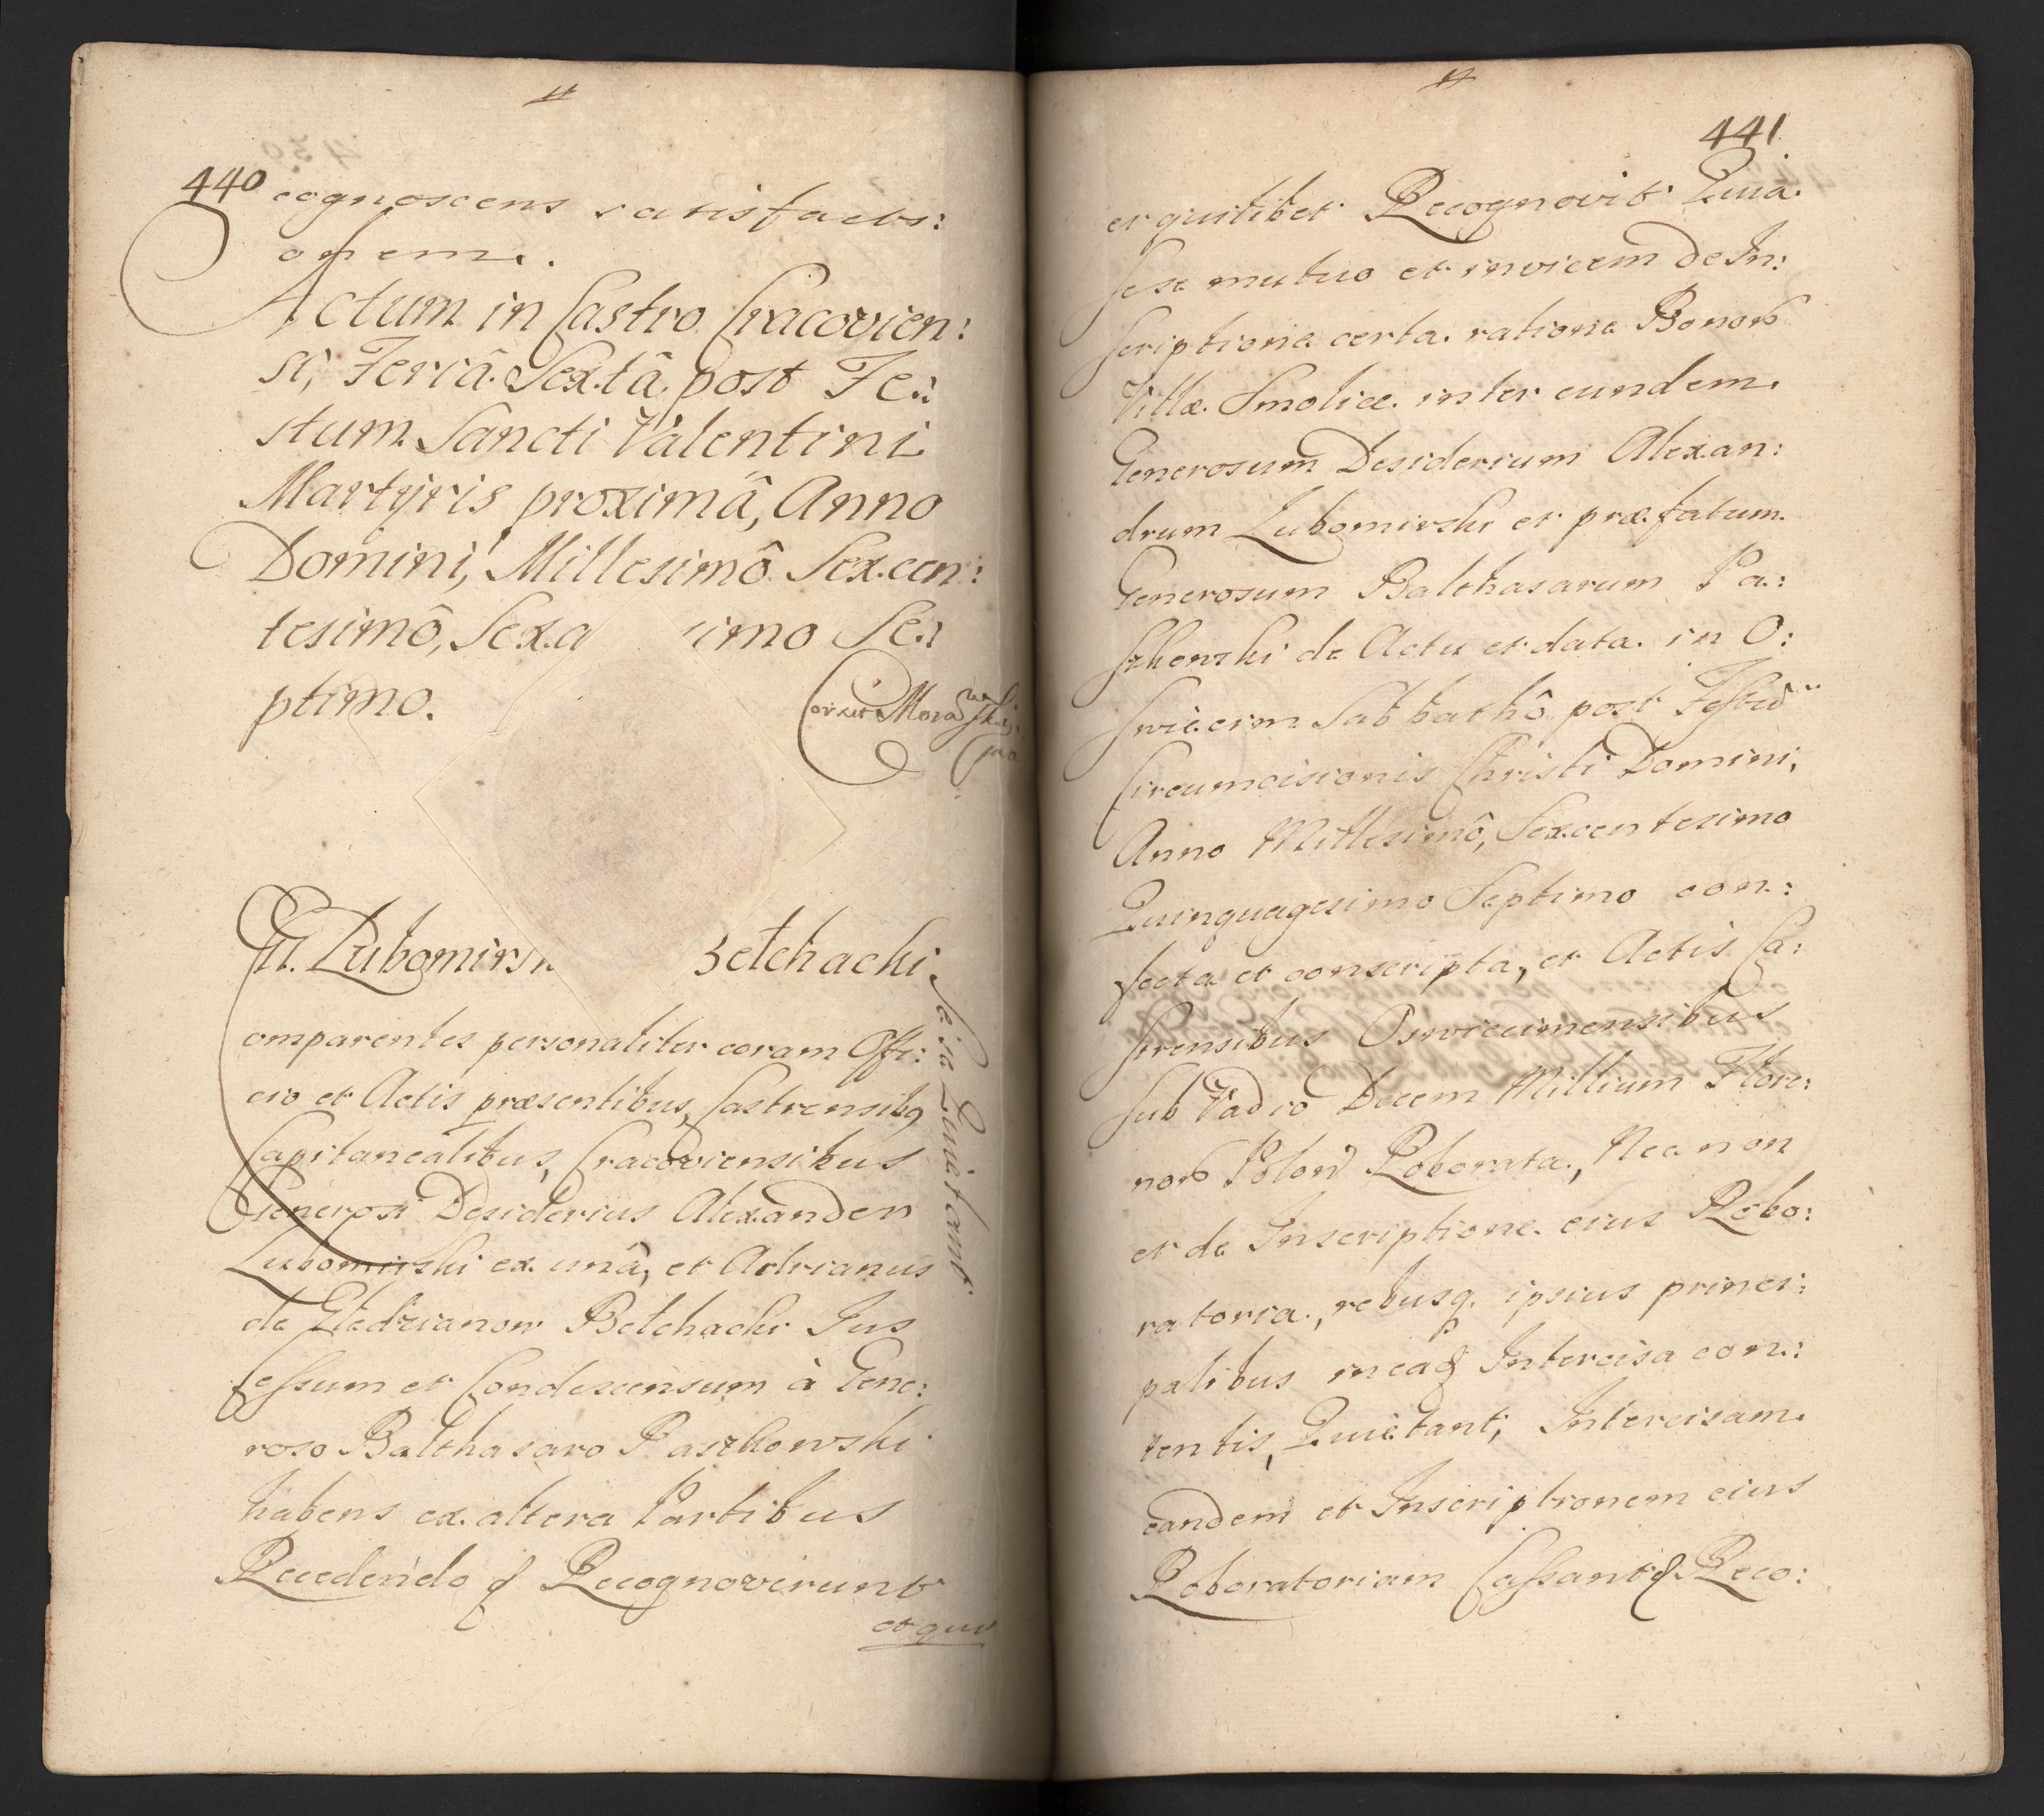 440
cognoscens satisfacti:
onem.
Actum in Castro Cracovien:
si, Feriâ Sextâ post Fe:
stum Sancti Valentini
Martyris proximâ, Anno
Domini, Millesimô Sexcen:
tesimô, Sexa imo Se:
ptimo.
Correxit Morawski
mp
Gn. Lubomirs Betchachi
Sese Quietant
Comparentes personaliter coram Offi:
cio et Actis præsentibus, Castrensibq
Capitanealibus, Cracoviensibus
Generosi Desiderius Alexander
Lubomirshi ex unâ, et Adrianus
de Betchachi Jus
Cessum et Condescensum à Gene:
roso Balthasaro Paszkowshi
habens ex altera Partibus
Recedendo & Recognoverunt
et qui
441
et quilibet Recognovit Quia
sese mutuo et invicem de In:
scriptione certa ratione Bonorũ
Villæ Smolice inter eundem
Generosum Desiderium Alexan:
drum Lubomirshi et præfatum
Generosum Balthasarum Pa:
szkowshi de Actu et data in O:
swiecim Sabbathô post Festũ
Circumcisionis Christi Domini,
Anno Millesimô, Sexcentesimo
Quinquagesimo Septimo con:
fecta et conscripta, et Actis Ca:
strensibus Oswiecimensibus
sub Vadio Decem Millium Flore:
norũ Polon Roborata, Nec non
et de Inscriptione eius Robo:
ratoria, rebusq. ipsius princi:
palibus in eaq Intercisa con:
tentis, Quietant, Intercisam
eandem et Inscriptionem eius
Roboratoriam Cassant & Reco: